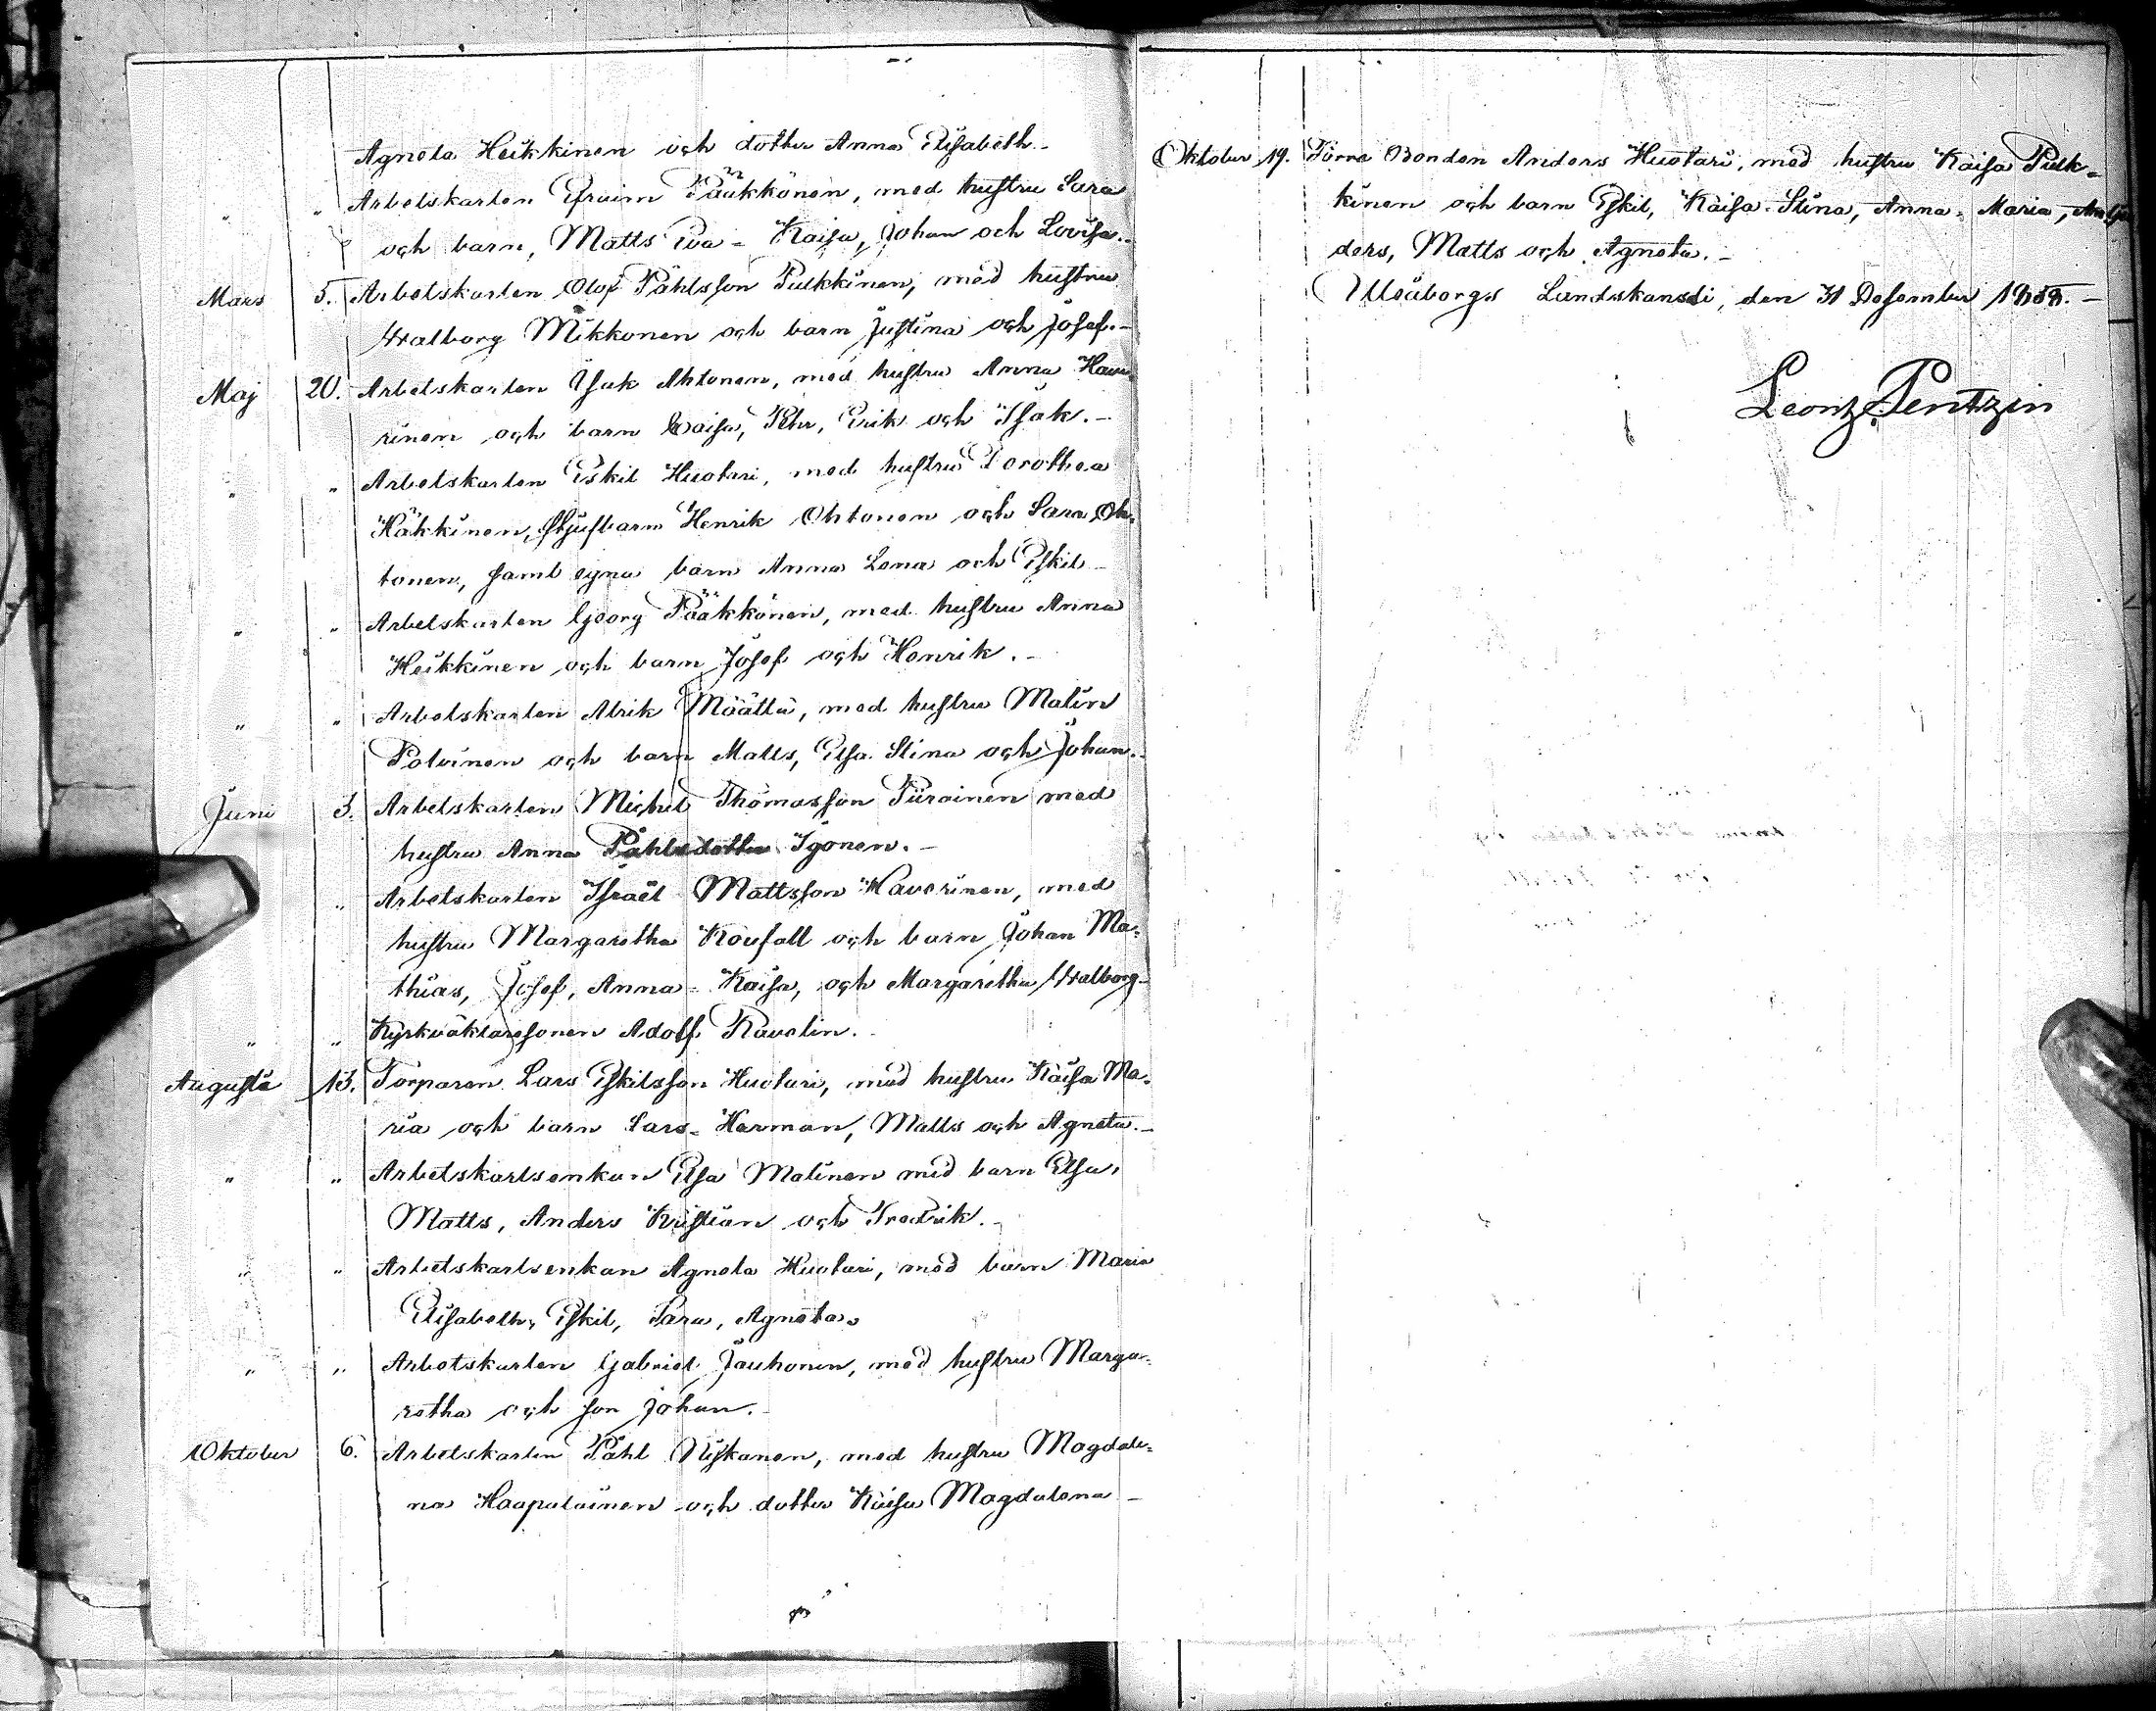 Agneta Heikkinen och dotter Anna Elisabeth.-
" " Arbetskarlen Efraim Pääkkönen, med hustru Sara
och barn, Matts Eva-Kaisa, Johan och Lovisa.-
Mars 5. Arbetskarlen Olof Påhlsson Pulkkinen, med hustru
Walborg Mikkonen och barn Justina och Josef.-
Maj 20. Arbetskarlen Isak Ahtonen, med hustru Anna Have-
rinen och barn Caisa, Pehr, Erik och Isak.-
" " Arbetskarlen Eskil Huotari, med hustru Dorothea
Häkkinen, styfbarn Henrik Ohtonen och Sara Oh-
tonen, samt egna barn Anna Lena och Eskil-
" " Arbetskarlen Georg Pääkkönen, med hustru Anna
Heikkinen och barn Josef och Henrik.-
" " Arbetskarlen Alrik Määttä, med hustru Malin
Polvinen och barn Matts, Elsa Stina och Johan.-
Juni 3. Arbetskarlen Michel Thomasson Piirainen med
hustru Anna Påhlsdotter Igonen.-
" Arbetskarlen Israël Mattsson Haverinen, med
hustru Margaretha Roufall och barn Johan Ma-
thias, Josef, Anna-Kaisa, och Margaretha Walborg-
" " Kyrkväktaresonen Adolf Ravelin.
Augusti 13. Torparen Lars Eskilsson Huotari, med hustru Kaisa Ma-
ria och barn Lars-Herman, Matts och Agneta.-
" " Arbetskarlsenkan Elsa Malinen med barn Elsa,
Matts, Anders Kristian och Fredrik.-
" " Arbetskarlsenkan Agneta Huotari, med barn Maria
Elisabeth, Eskil, Sara, Agneta.
" " Arbetskarlen Gabriel Jauhonen, med hustru Marga-
retha och son Johan.-
Oktober 6. Arbetskarlen Påhl Niskanen, med hustru Magdale-
na Haapalainen och dotter Kaisa Magdalena-
Oktober 19. Förre Bonden Anders Huotari, med hustru Kaisa Pulk-
kinen och barn Eskil, Kaisa-Stina, Anna-Maria, An-
ders, Matts och Agneta.-
Uleåborgs Landskansli, den 31 December 1868.-
Leontz. Pentzin